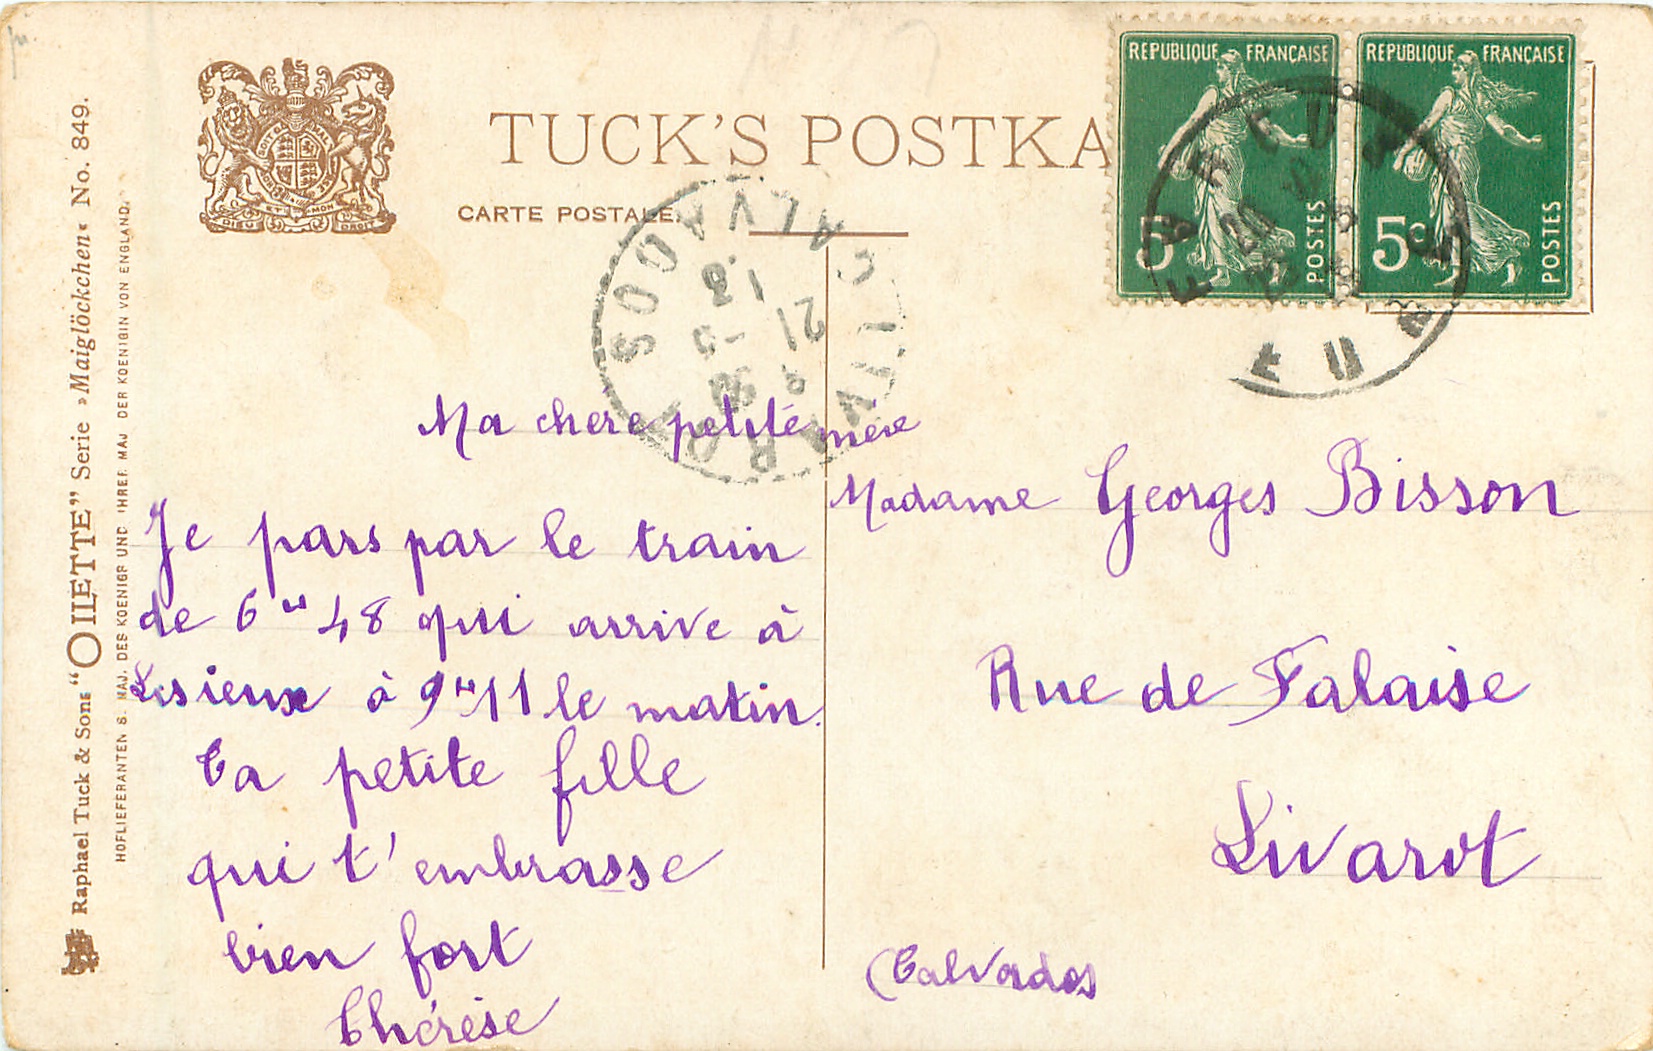 TUCK'S POSTKA
CARTE POSTALE.
REPUBLIQUE FRANÇAISE
5
POSTES
REPUBLIQUE FRANÇAISE
5c
POSTES
EVREUX
EURE
LIVAROT
CALVADOS
Raphael Tuck & Sons "OILETTE" Serie »Maiglöckchen« No. 849.
HOFLIEFERANTEN S. MAJ. DES KOENIGS UND IHRER MAJ. DER KOENIGIN VON ENGLAND.
DIEU ET MON DROIT
Ma chere petite mère
Je pars par le train
de 6 H 48 qui arrive à
Lisieux à 9 H 11 le matin.
Ta petite fille
qui t'embrasse
bien fort
Thérèse
Madame Georges Bisson
Rue de Falaise
Livarot
(Calvados